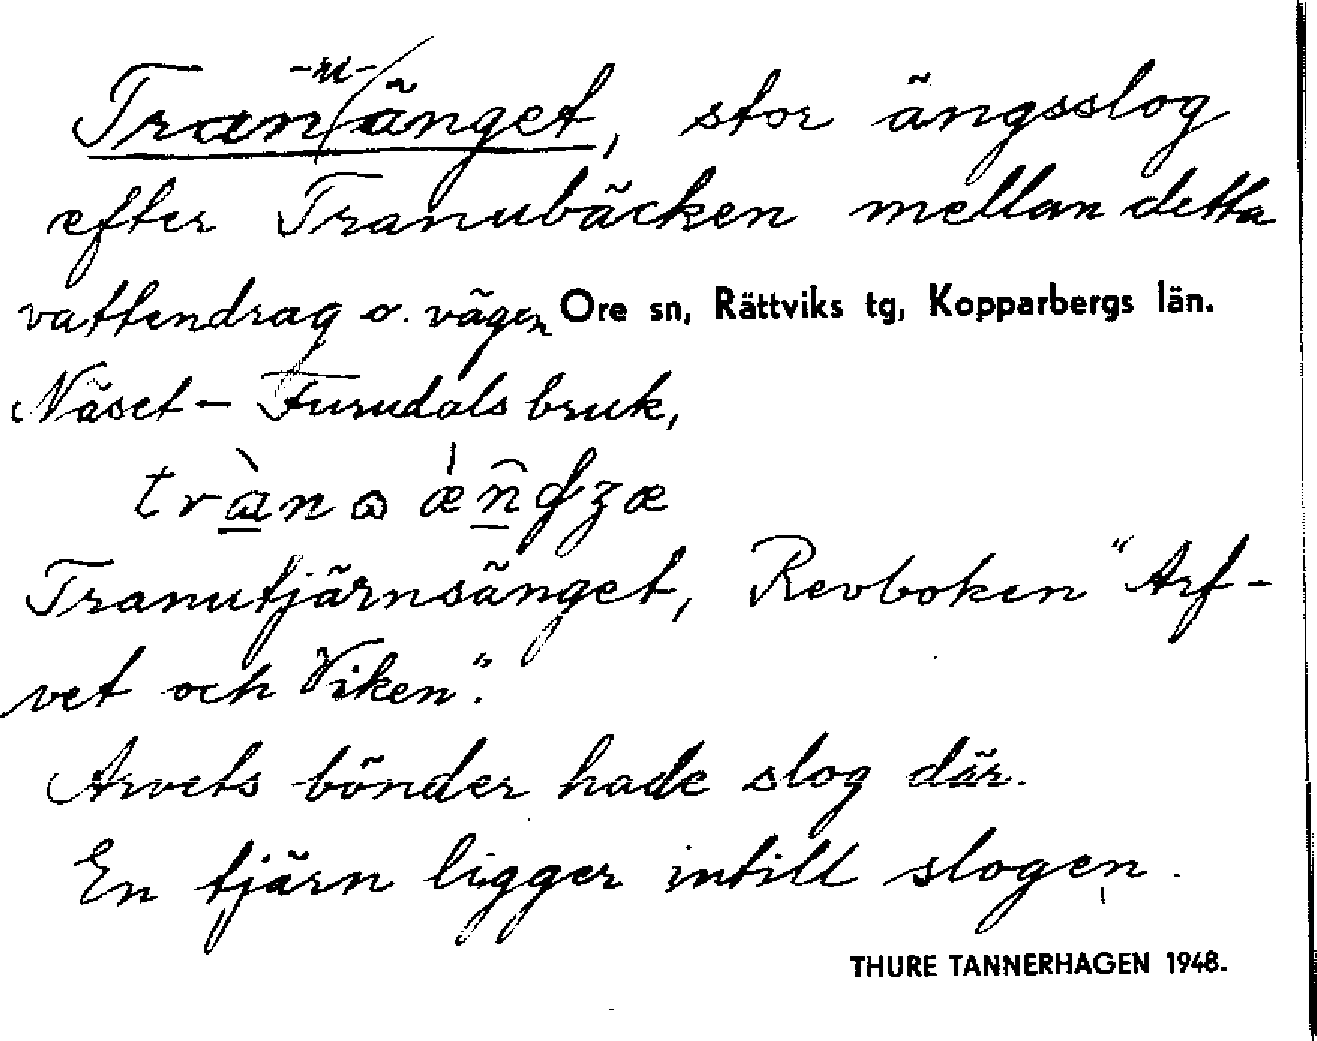 Tran/änget, stor ängsslog
-u-
efter Tranubäcken mellan detta
vattendrag o. vägen Ore sn, Rättviks tg, Kopparbergs län.
Näset - Furudals bruk,
Tranutjärnsänget, Revboken "Arf-
vet och Viken".
Arvets bönder hade slog där.
En tjärn ligger intill slogen.
THURE TANNERHAGEN 1948.